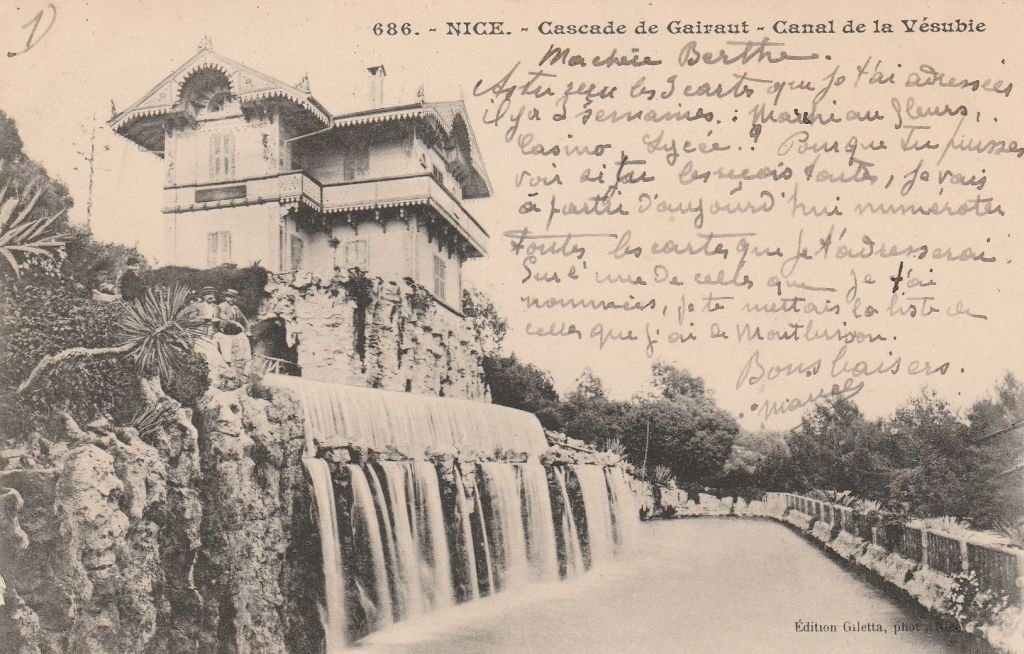 1)
686. - NICE. - Cascade de Gairaut - Canal de la Vésubie
Ma chère Berthe.
As tu reçu les 3 cartes que je t'ai adressées
il y a 2 semaines. : Marché aux fleurs,
Casino, Lycée..? Pour que tu puisses
voir si tu les reçois toutes, je vais
à partir d'aujourd'hui numéroter
toutes les cartes que je t'adresserai.
Sur l'une de celles que je t'ai
nommées, je te mettais la liste de
celles que j'ai de Montbrison.
Bons baisers.
Édition Giletta, phot., Nice